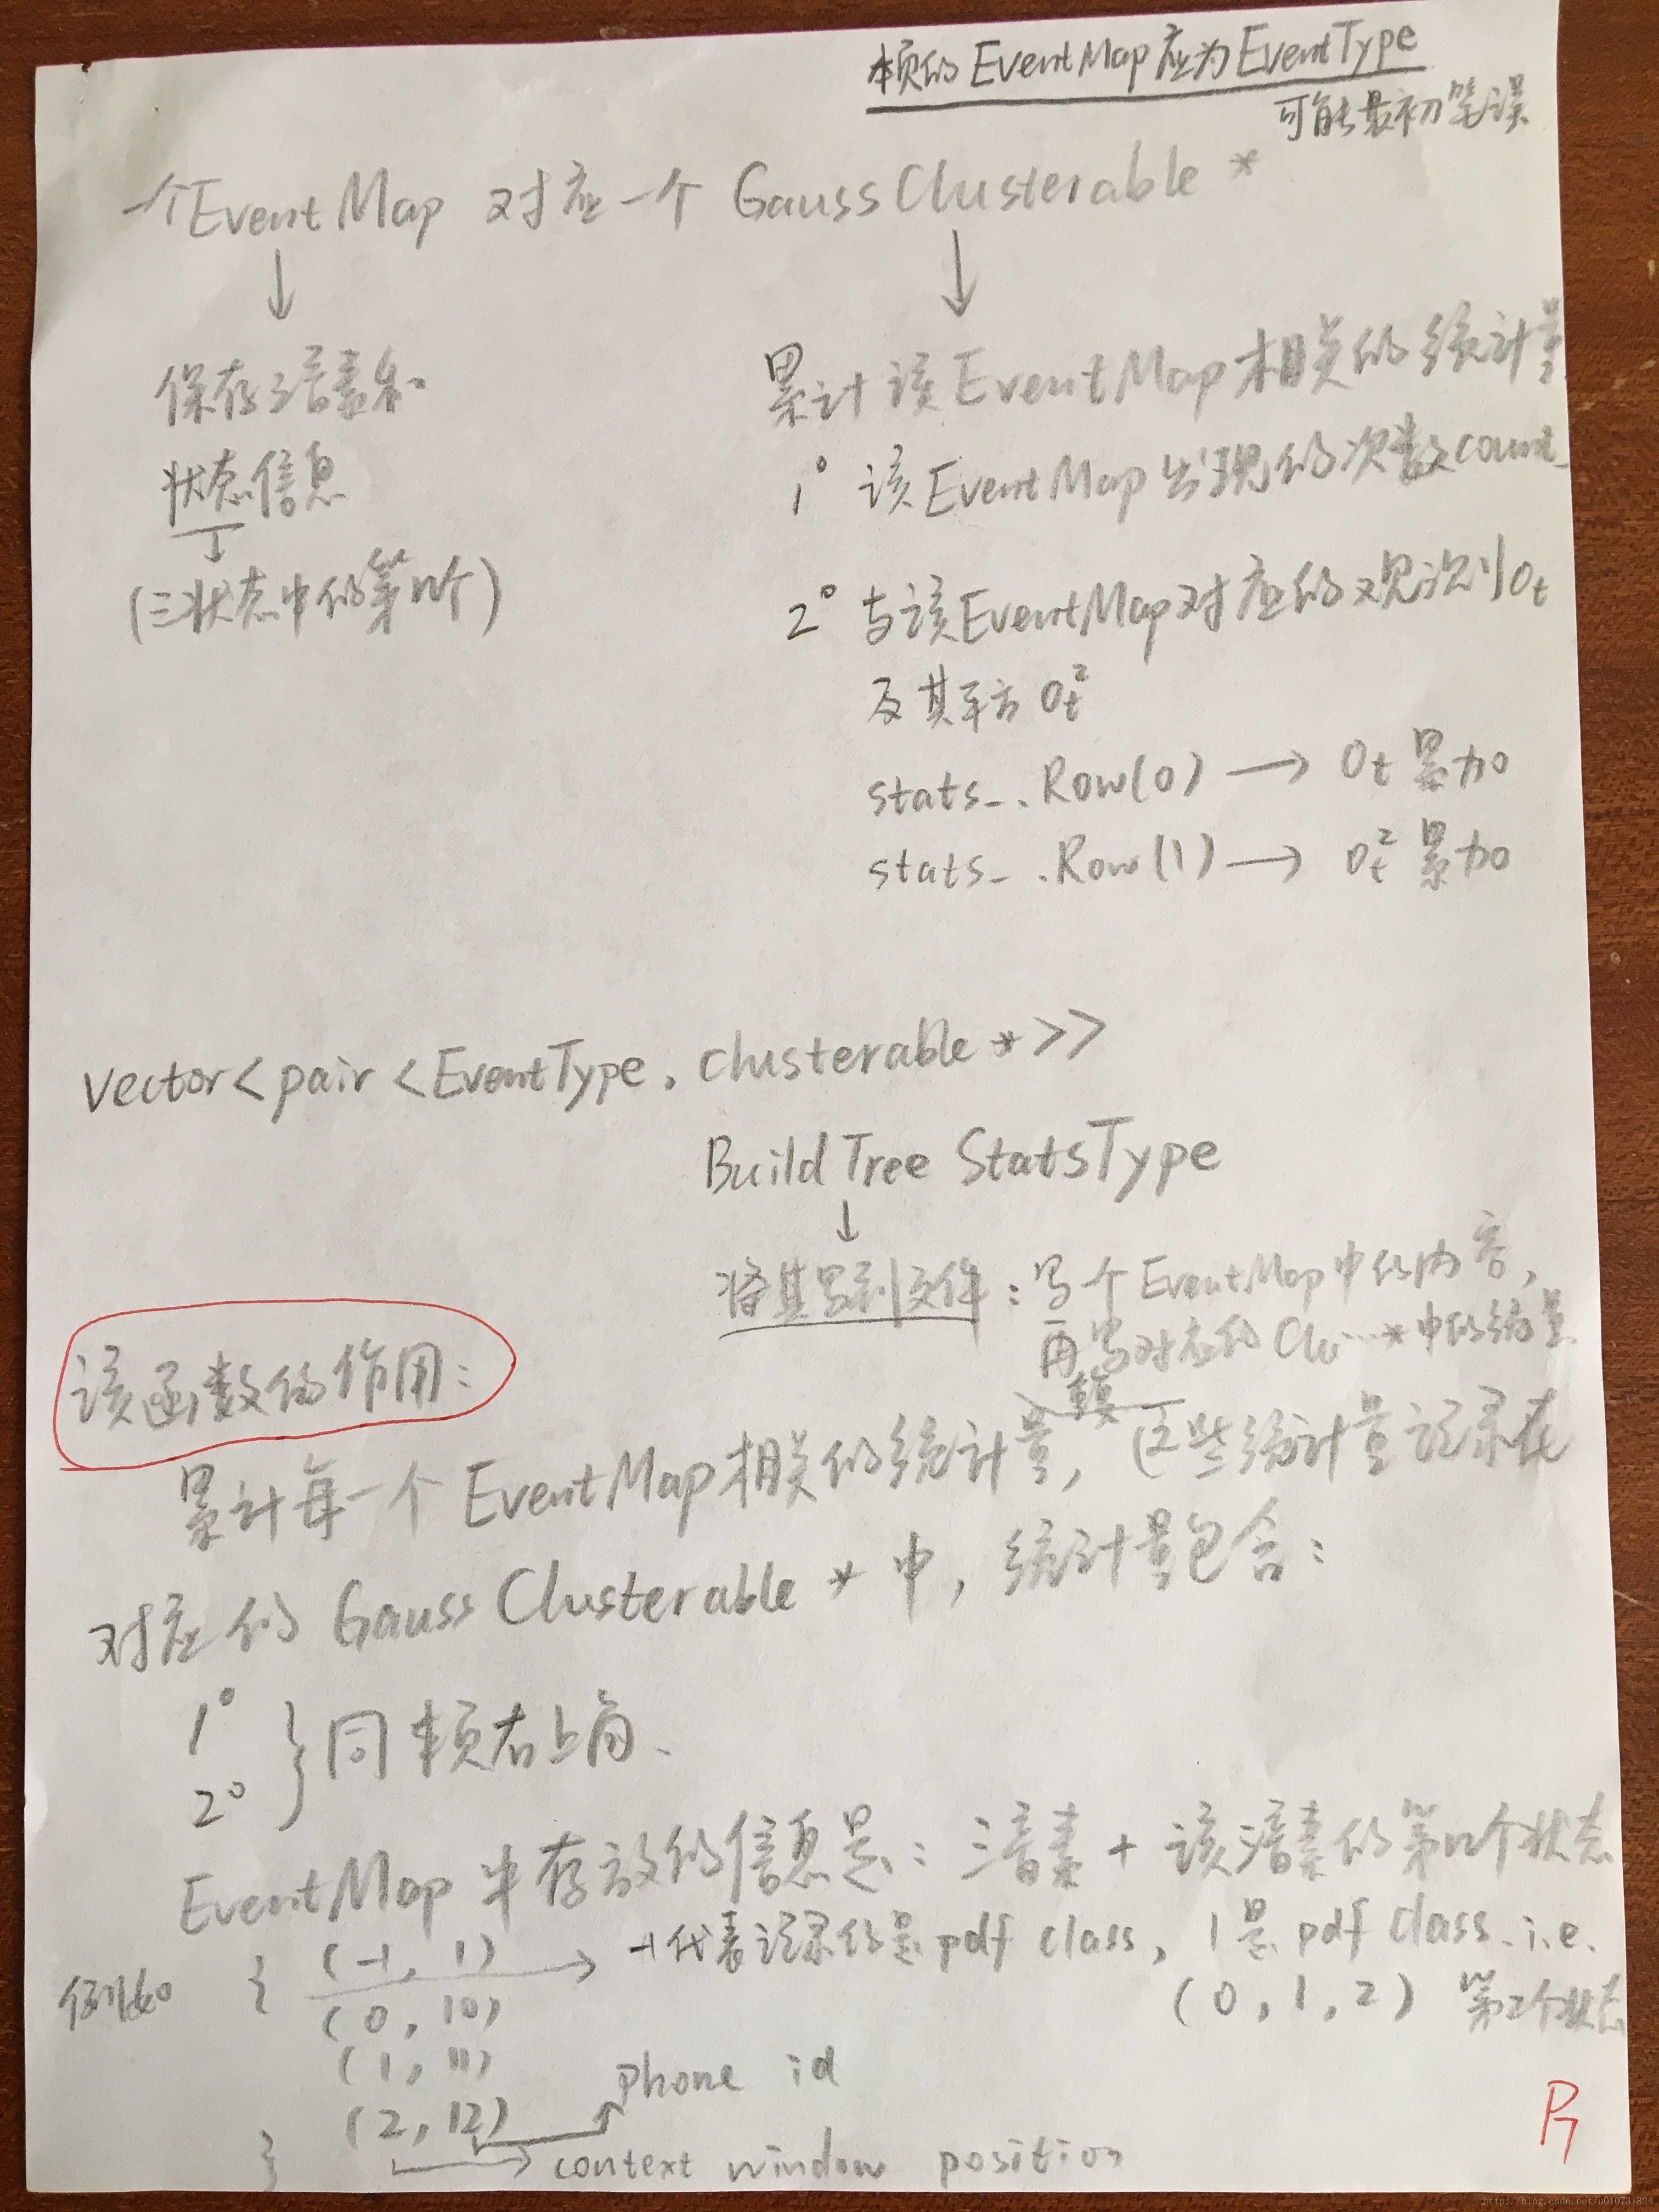 本页的 EventMap 应为 EventType
可能最初笔误
一个EventMap 对应一个 GaussClusterable *
↓ ↓
保存三音素和
状态信息
(三状态中的第几个)
累计该EventMap相关的统计量
1° 该EventMap出现的次数count_
2° 与该EventMap对应的观测到Ot
及其平方 Ot²
stats_.Row(0) → Ot 累加
stats_.Row(1) → Ot² 累加
vector<pair<EventType, clusterable *>>
BuildTree StatsType
↓
将其写到文件: 写个EventMap中的内容,
再写对应的 Clu…* 中的统量
该函数的作用:
累计每一个 EventMap相关的统计量, 这些统计量记录在
对应的 GaussClusterable * 中, 统计量包含:
1°
2° } 同本页右上角.
EventMap 中存放的信息是: 三音素 + 该三音素的第几个状态
例如 { (-1, 1) → -1代表记录的是pdf class, 1是 pdf class. i.e.
(0, 10) (0, 1, 2) 第2个状态
(1, 11)
(2, 12) → phone id
} → context window position
P7
http://blog.csdn.net/u010731824